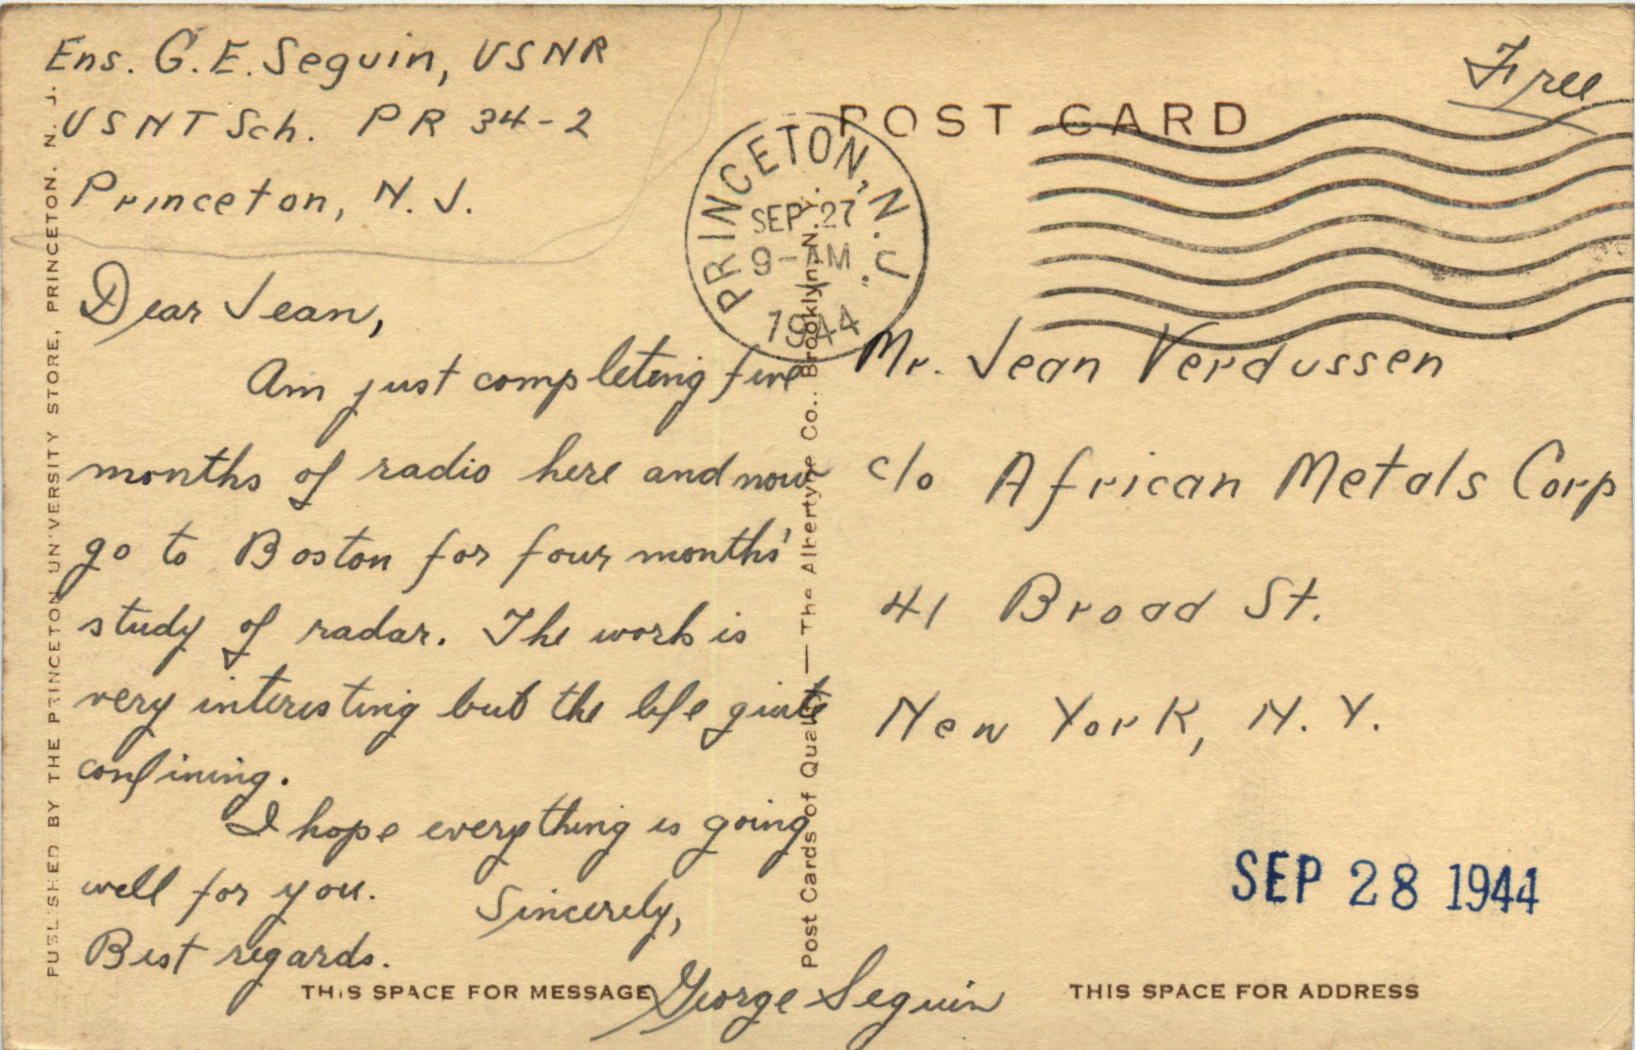 Ens. G. E. Seguin, USNR
USNT Sch. PR 34-2
Princeton, N. J.
Dear Jean,
Am just completing five
months of radio here and now
go to Boston for four months'
study of radar. The work is
very interesting but the life quite
confining.
I hope everything is going
well for you.
Sincerely,
Best regards.
George Seguin
THIS SPACE FOR MESSAGE
PUBLISHED BY THE PRINCETON UNIVERSITY STORE, PRINCETON, N. J.
Post Cards of Quality — The Albertype Co., Brooklyn, N. Y.
POST CARD
Free
PRINCETON, N. J.
SEP 27
9-AM
1944
Mr. Jean Verdussen
c/o African Metals Corp
41 Broad St.
New York, N. Y.
SEP 28 1944
THIS SPACE FOR ADDRESS